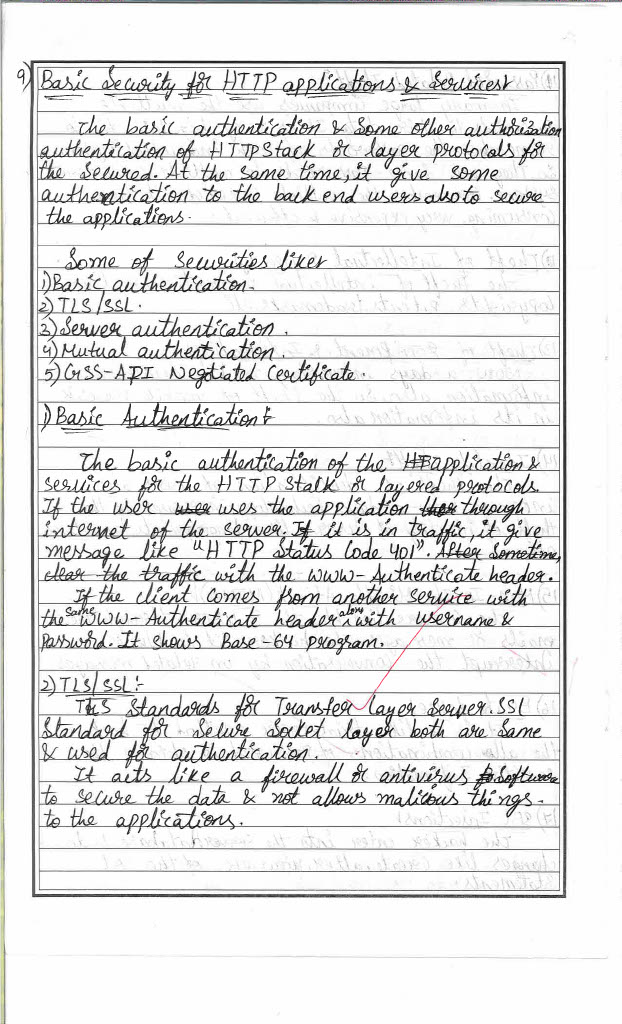 9) Basic Security for HTTP applications & Services:
The basic authentication & Some other authorization
authentication of HTTP Stack or layer protocols for
the Secured. At the same time, it give some
authentication to the back end users also to secure
the applications.
Some of Securities like:
1) Basic authentication.
2) TLS/SSL.
3) Server authentication.
4) Mutual authentication.
5) GSS-API Negotiated Certificate.
1) Basic Authentication:
The basic authentication of the HT application &
services for the HTTP Stack or layered protocols.
If the user user uses the application through
internet of the server. If it is in traffic, it give
message like "HTTP Status Code 401". After Sometime,
clear the traffic with the WWW-Authenticate header.
If the client comes from another service with
the same WWW-Authenticate header along with username &
Password. It shows Base-64 program.
2) TLS/SSL:-
TLS Standards for Transfer layer Server. SSL
Standard for Secure Socket layer both are Same
& used for authentication.
It acts like a firewall or antivirus Software
to secure the data & not allows malicious things.
to the applications.